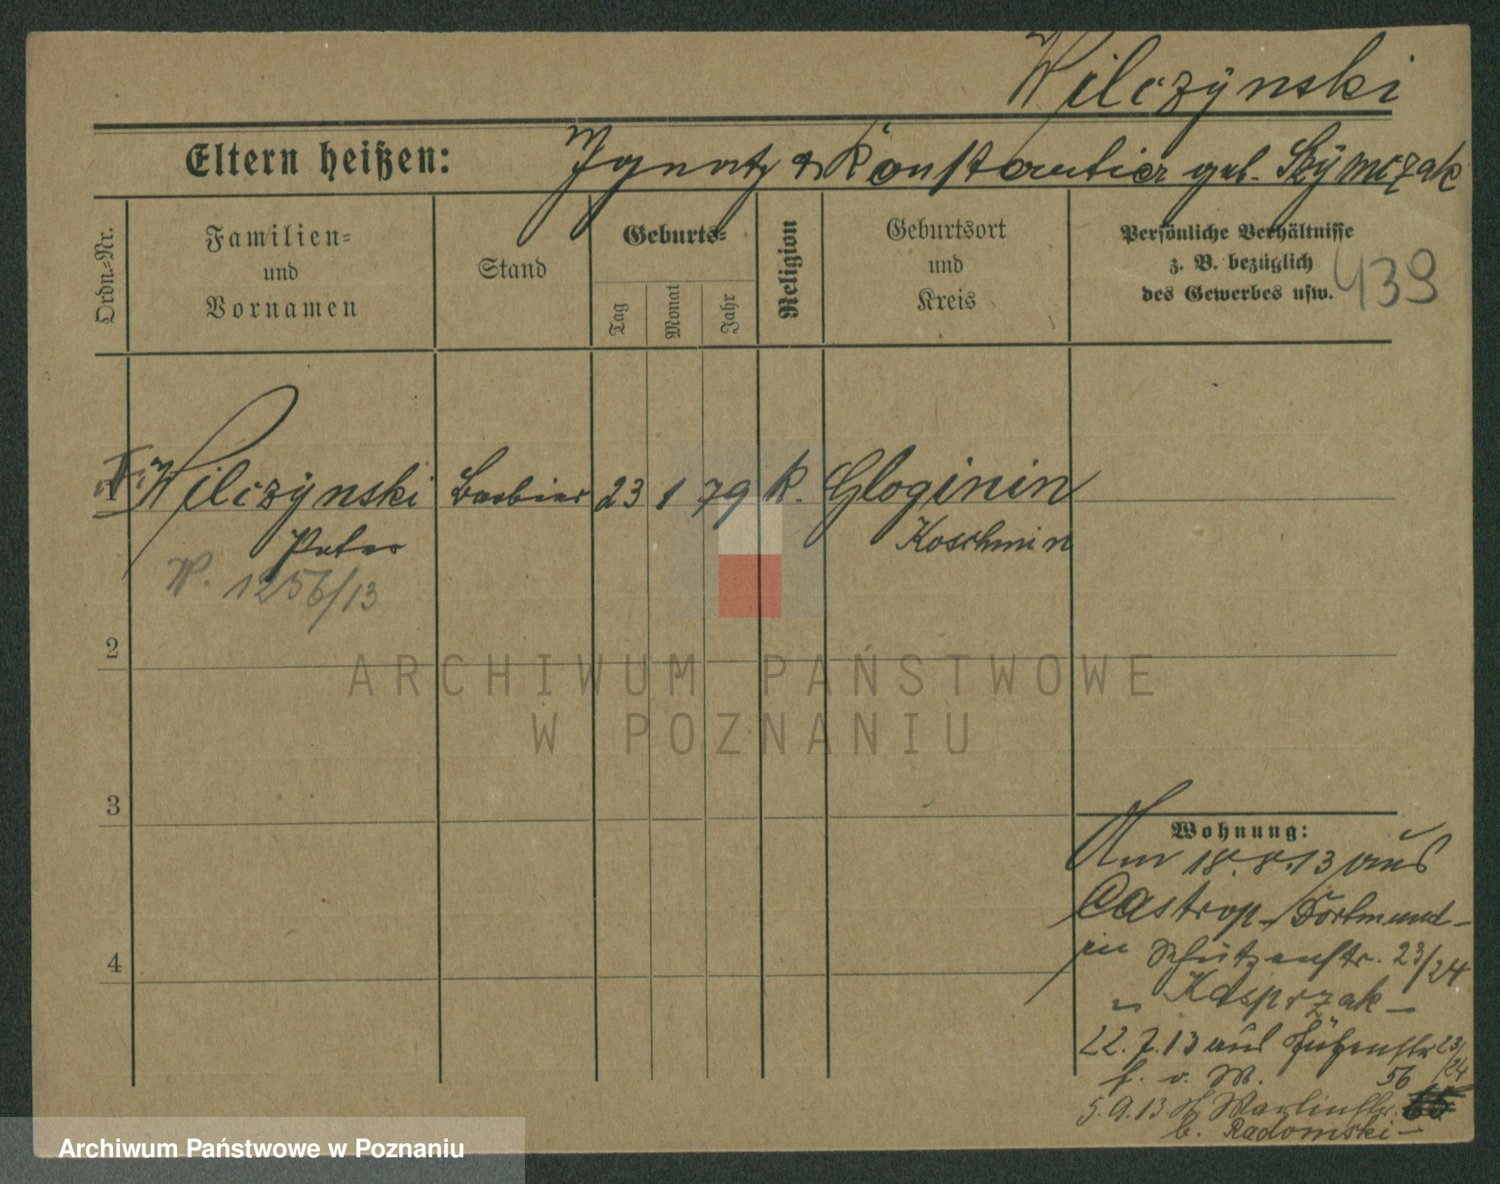 Wilczynski
Eltern heißen: Ignatz & Konstantia geb. Szymczak
Ordn.=Nr.
Familien=
und
Vornamen
Stand
Geburts=
Tag
Monat
Jahr
Religion
Geburtsort
und
Kreis
Persönliche Verhältnisse
z. B. bezüglich
des Gewerbes usw.
439
1 Wilczynski Barbier 23 1 79 k. Gloginin
Peter Koschmin
W. 1256/13
2
3
4
Wohnung:
Am 18. 8. 13 aus
Castrop-Dortmund-
in Schützenstr. 23/24
Kasprzak-
22. 7. 13 aus Schützenstr 23/24
f. v. W. 56
5. 9. 13
b. Radomski-
ARCHIWUM PAŃSTWOWE
W POZNANIU
Archiwum Państwowe w Poznaniu